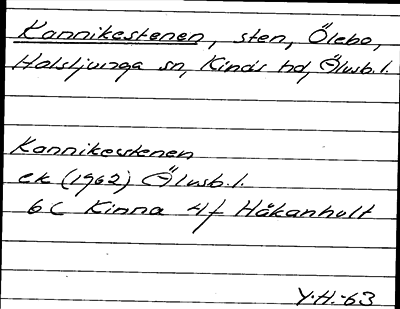 Kannikestenen, sten, Ölebo,
Holsljunga sn, Kinds hd, Älvsb. l.
Kannikestenen
ek (1962) Älvsb. l.
6C Kinna 4f Håkanhult
Y.H.-63